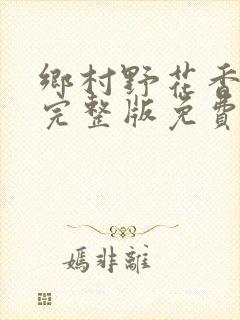 鄉村野花香
完整版免費
媽非離